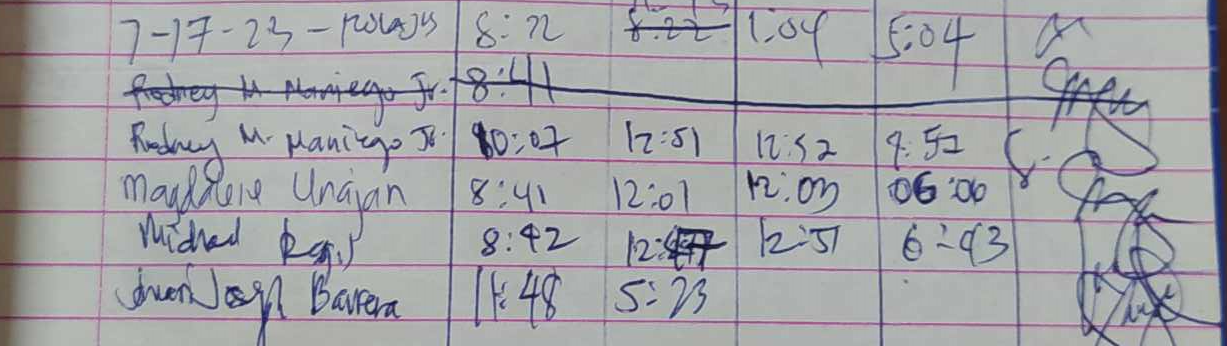 7-17-23 - 8:22 8:22 1:04 5:04
Rodney M. Maniego Jr. 8:41
Rodney M. Maniego Jr. 10:07 12:51 12:52 4:52
Magdalene Unajan 8:41 12:01 12:03 06:06
Michael 8:42 12:47 12:51 6:43
Barrera 11:48 5:23